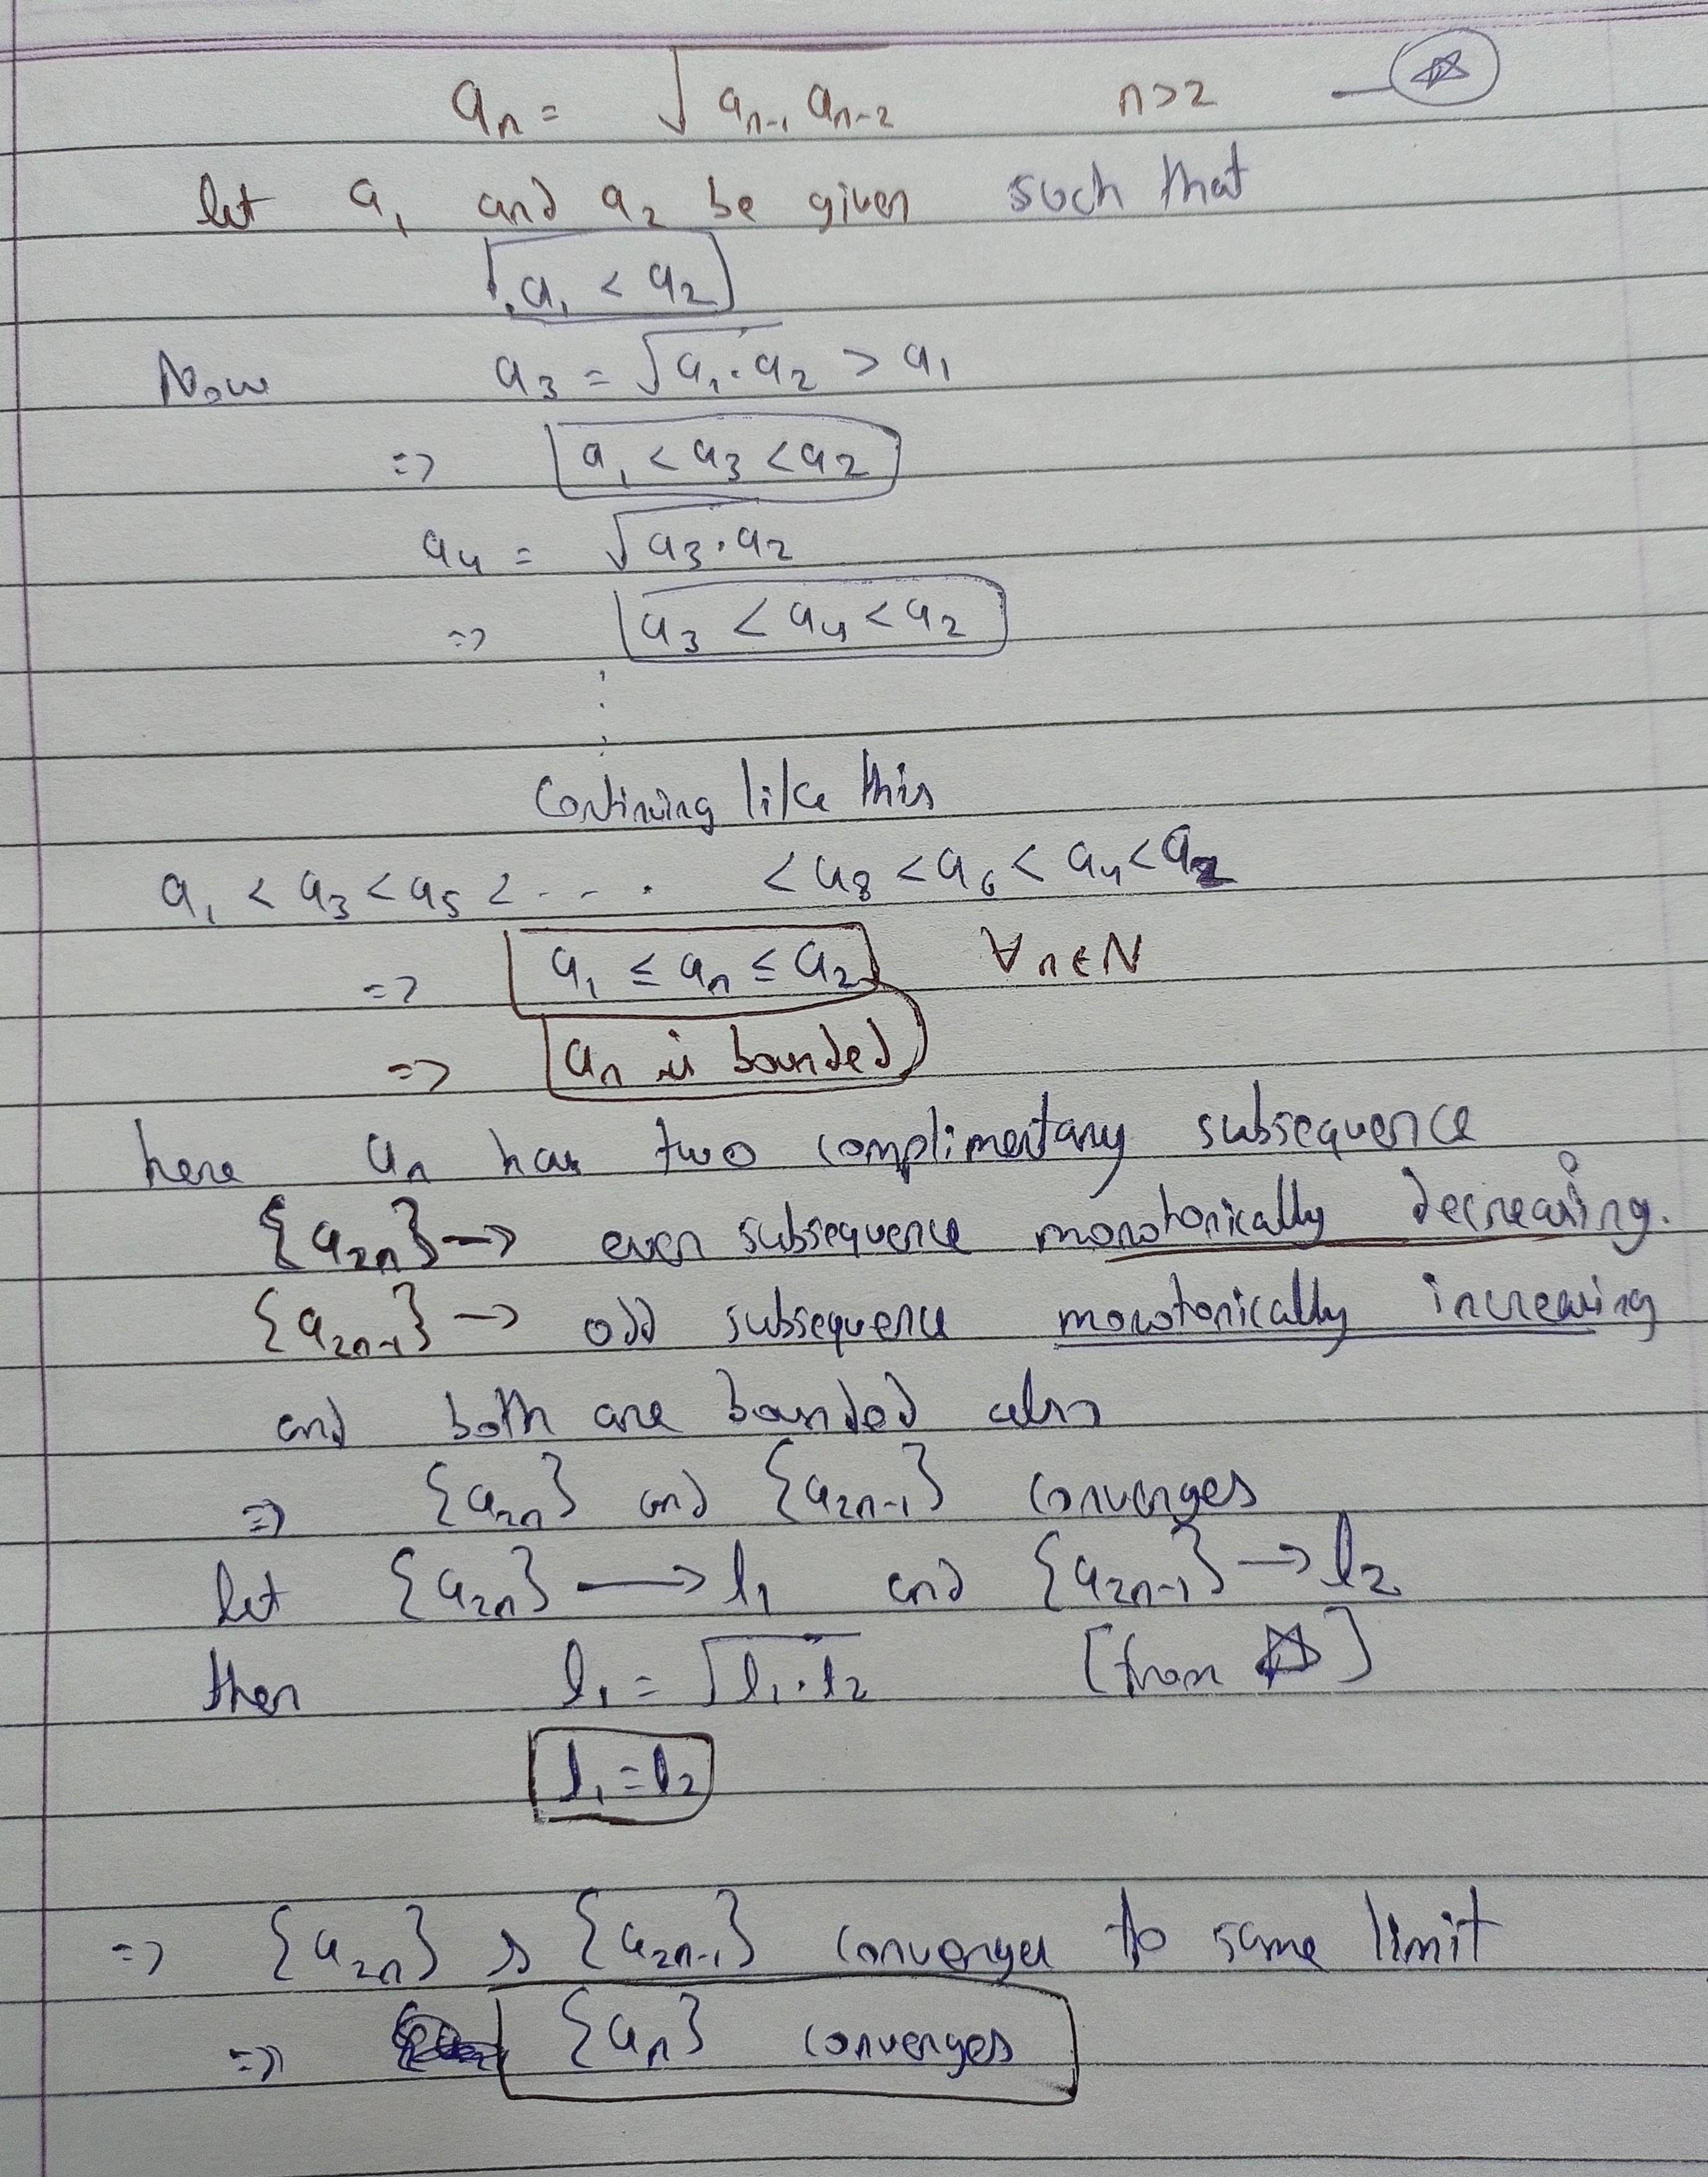 aₙ = √(aₙ₋₁ aₙ₋₂) n>2 — ☆
let a₁ and a₂ be given such that
a₁ < a₂
Now a₃ = √(a₁.a₂) > a₁
=> a₁ < a₃ < a₂
a₄ = √(a₃.a₂)
=> a₃ < a₄ < a₂
⋮
Continuing like this
a₁ < a₃ < a₅ < - - - . < a₈ < a₆ < a₄ < a₂
=> a₁ ≤ aₙ ≤ a₂ ∀ n ∈ N
=> aₙ is bounded
here aₙ has two complimentary subsequence
{a₂ₙ} → even subsequence monotonically decreasing.
{a₂ₙ₋₁} → odd subsequence monotonically increasing
and both are bounded also
=> {a₂ₙ} and {a₂ₙ₋₁} converges
let {a₂ₙ} → l₁ and {a₂ₙ₋₁} → l₂
then l₁ = √(l₁.l₂) [from ☆]
l₁ = l₂
=> {a₂ₙ} & {a₂ₙ₋₁} converges to same limit
=> {aₙ} converges